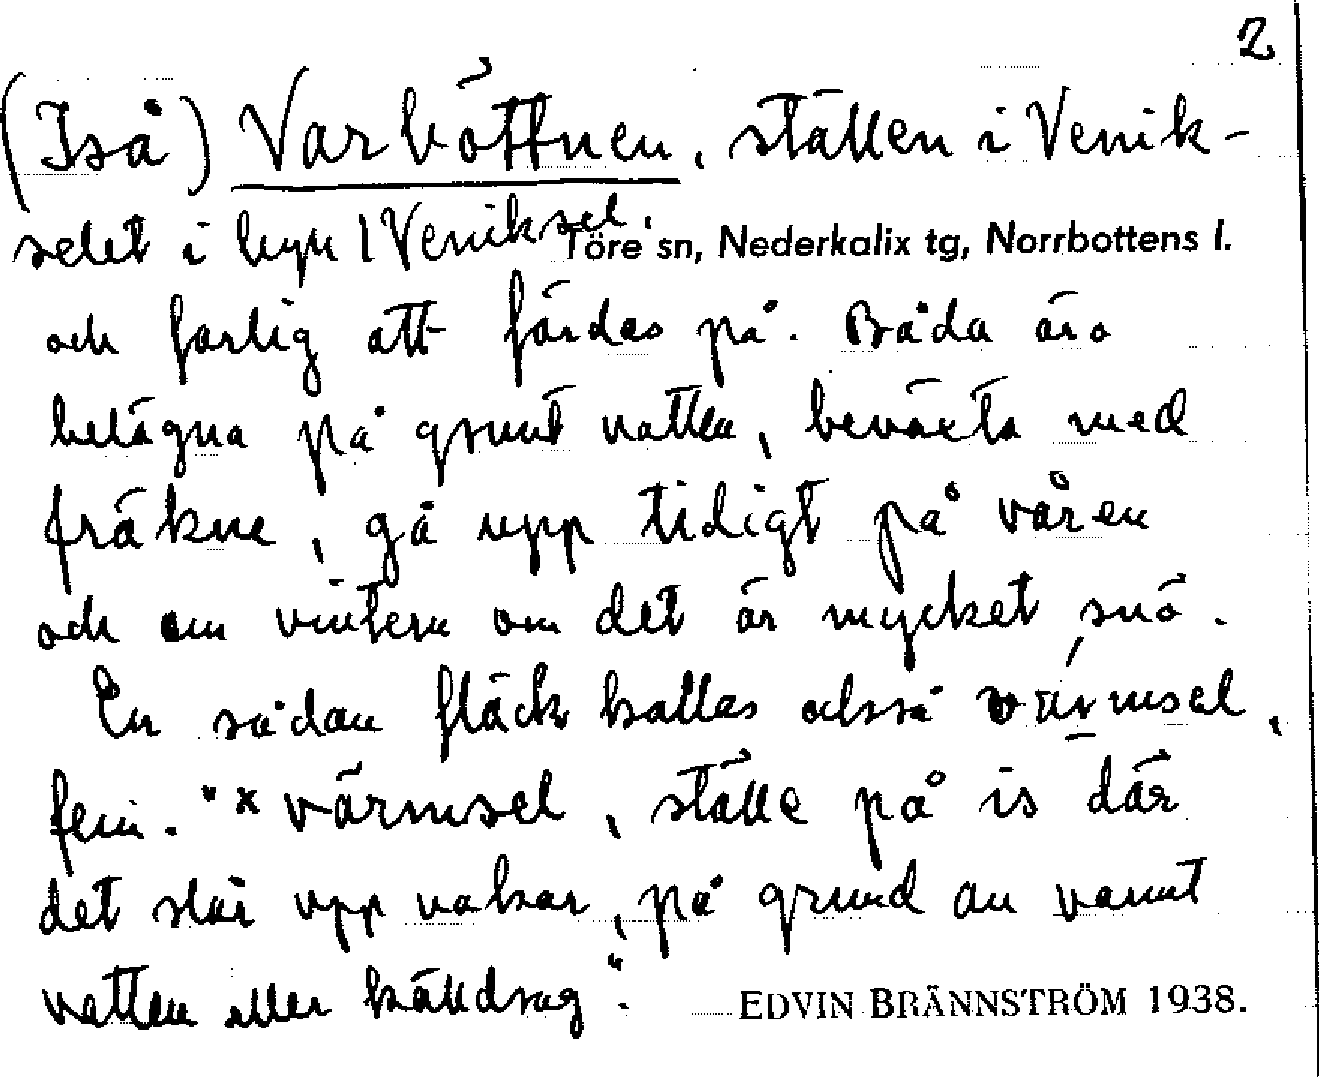 2
(Iså) Varbottnen, ställen i Venik-
selet i byn 1 Veniksel.
Töre sn, Nederkalix tg, Norrbottens l.
och farlig att färdas på. Båda äro
belägna på grunt vatten, beväxta med
fräkne, gå upp tidigt på våren
och om vintern om det är mycket snö.
En sådan fläck kallas också värmsel,
fem. "* värmsel, ställe på is där
det slår upp vakar, på grund av varmt
vatten eller källdrag".
EDVIN BRÄNNSTRÖM 1938.